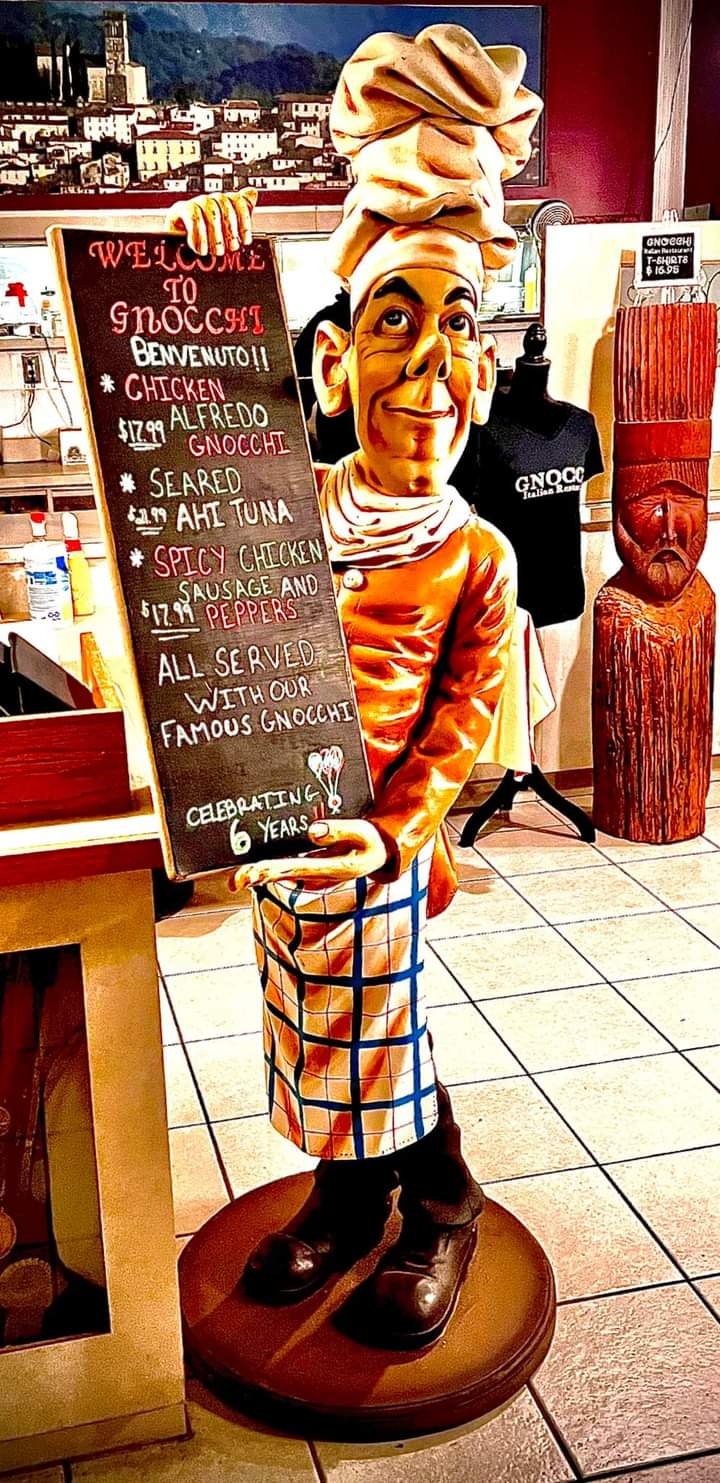 WELCOME
TO
GNOCCHI
BENVENUTO!!
* CHICKEN
$17.99 ALFREDO
GNOCCHI
* SEARED
$21.99 AHI TUNA
* SPICY CHICKEN
SAUSAGE AND
$17.99 PEPPERS
ALL SERVED
WITH OUR
FAMOUS GNOCCHI
CELEBRATING
6 YEARS!!
GNOCCHI
Italian Restaurant
T-SHIRTS
$ 16.95
GNOCC
Italian Resta